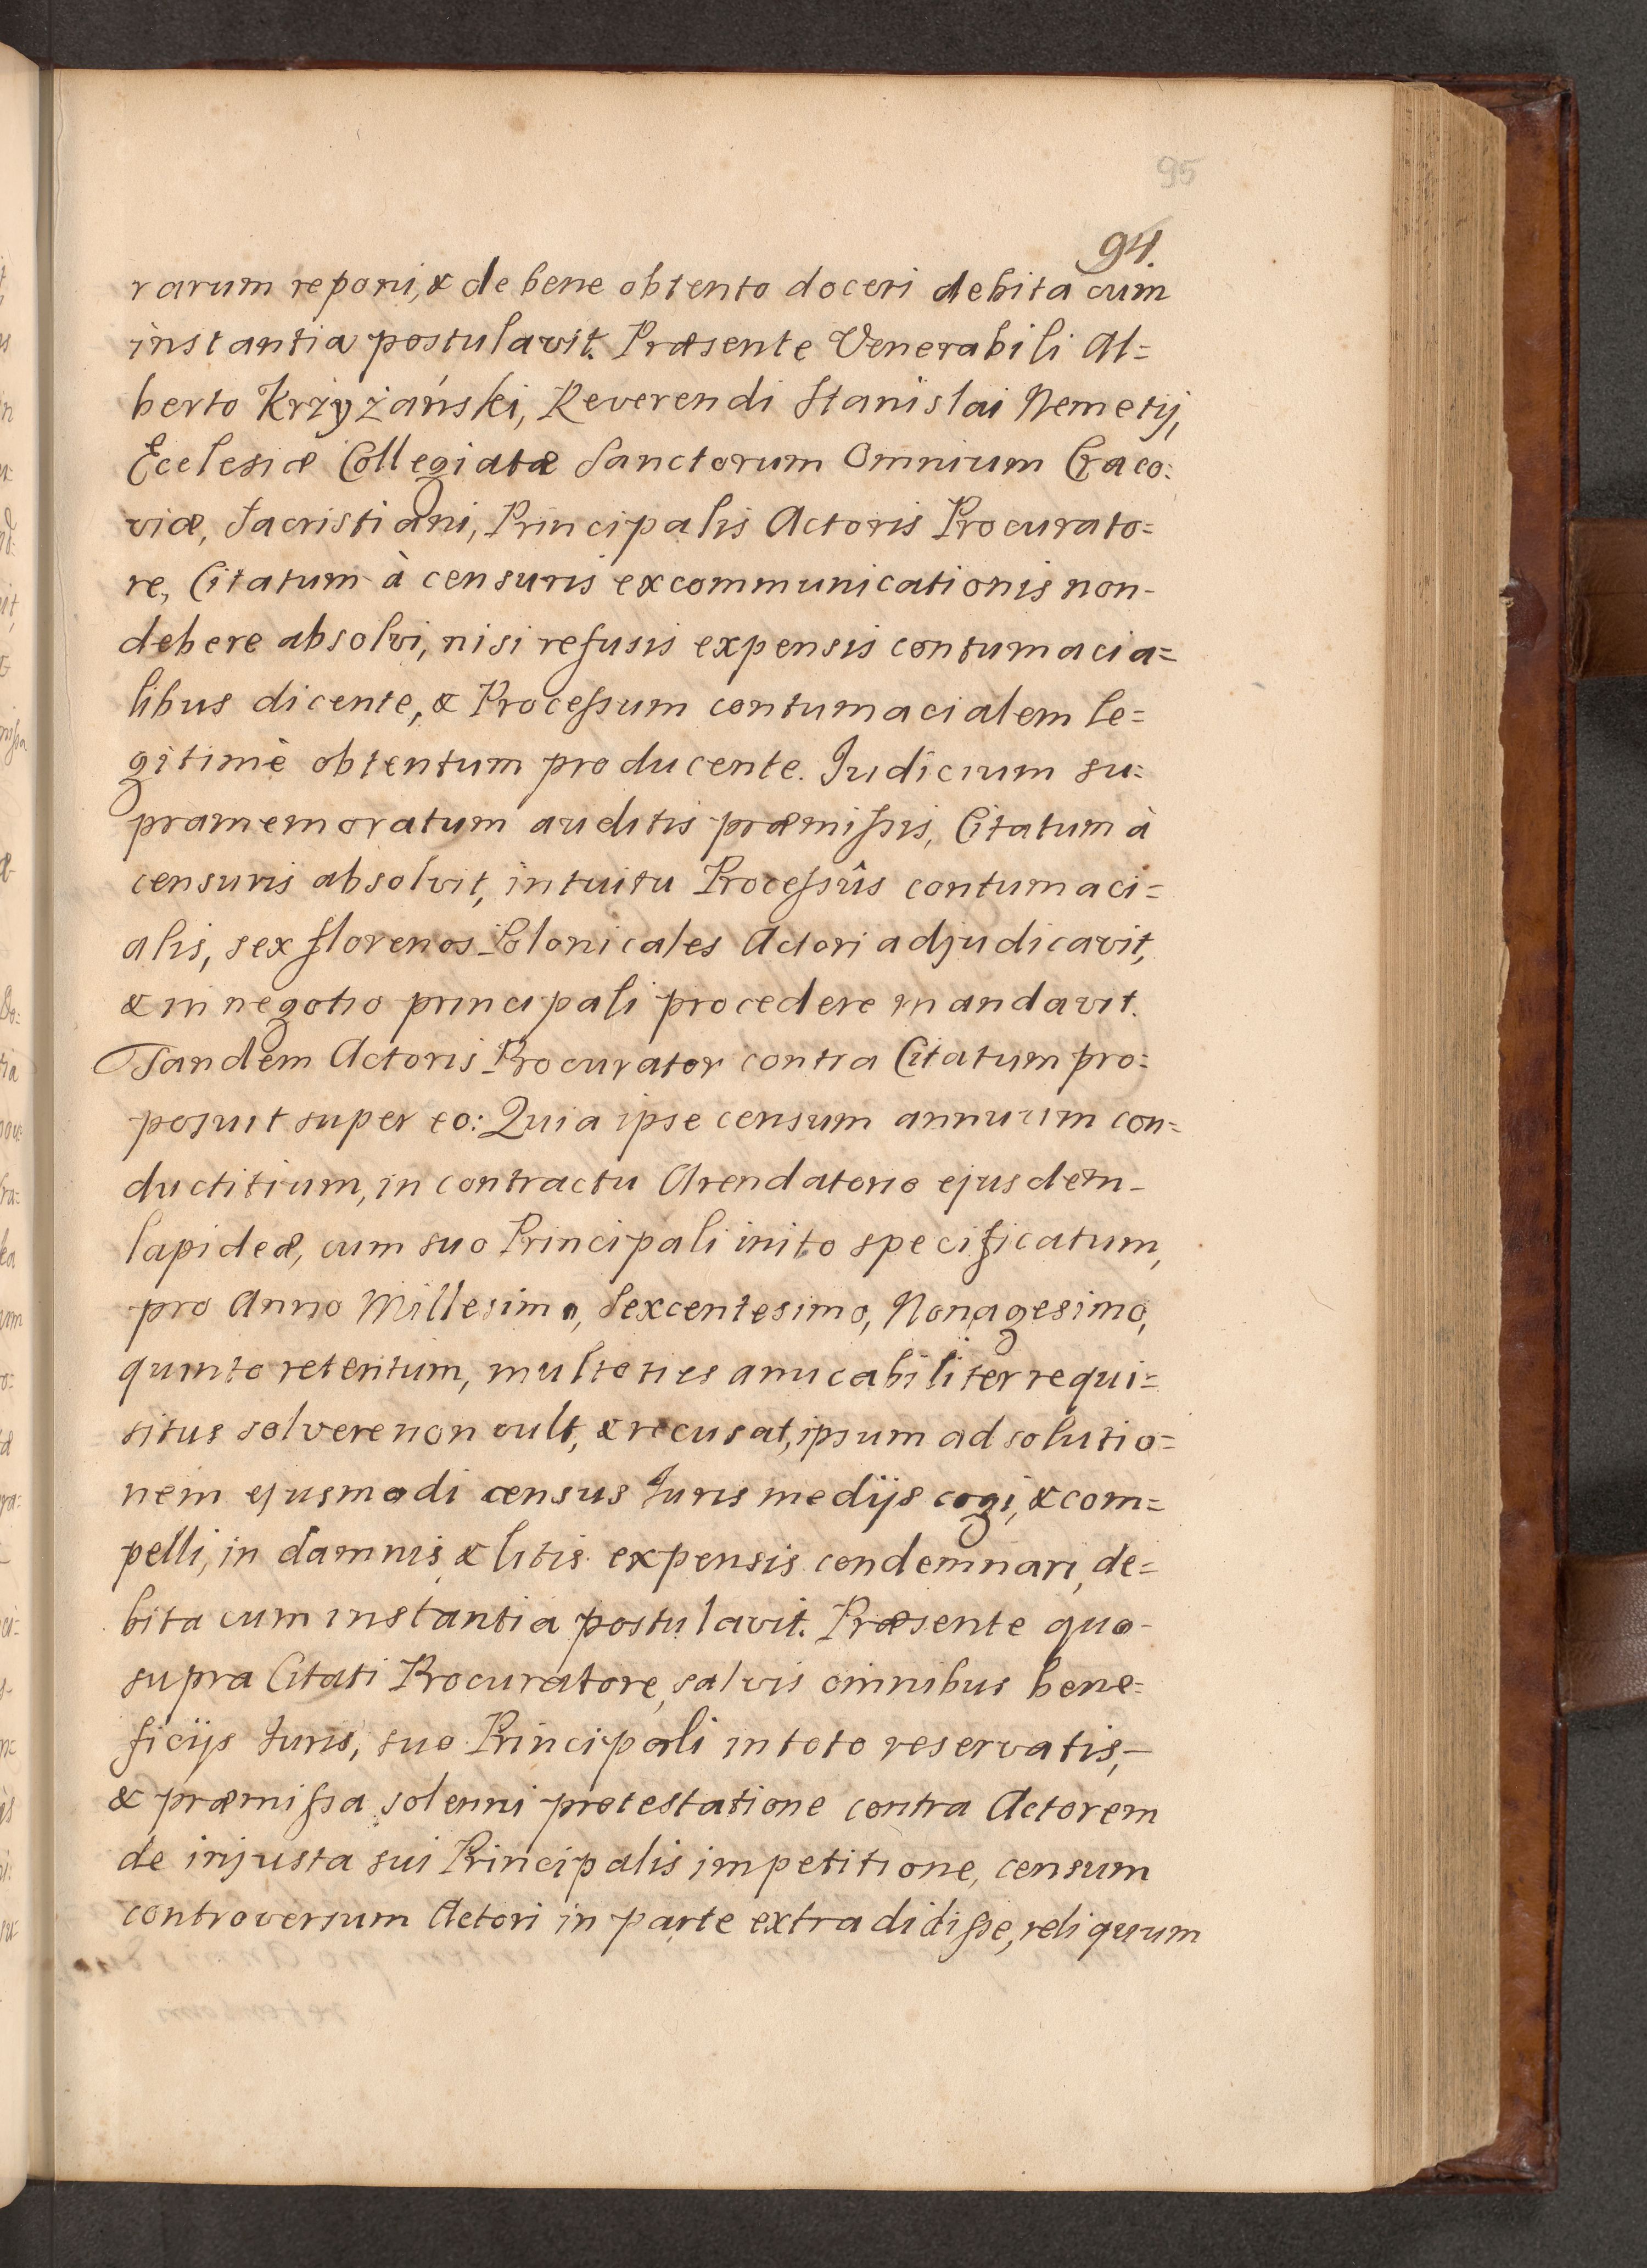 95
94.
rarum reponi, & de bene obtento doceri debita cum
instantia postulavit. Præsente Venerabili Al=
berto Krżyżański, Reverendi Stanislai Nemetij,
Ecclesiæ Collegiatæ Sanctorum Omnium Craco:
viæ, Sacristiani, Principalis Actoris Procurato=
re, Citatum à censuris excommunicationis non-
debere absolvi, nisi refusis expensis contumacia=
libus dicente, & Processum contumacialem le=
gitimè obtentum producente. Judicium su:
pramemoratum auditis præmissis, Citatum à
censuris absolvit, intuitu Processûs contumaci=
alis, sex florenos Polonicales Actori adjudicavit,
& in negotio principali procedere mandavit.
Tandem Actoris Procurator contra Citatum pro:
posuit super eo: Quia ipse censum annuum con=
ductitium, in contractu Arendatorio ejusdem-
lapideæ, cum suo Principali inito specificatum,
pro Anno Millesimo, Sexcentesimo, Nonagesimo,
quinto retentum, multoties amicabiliter requi=
situs solvere non vult, & recusat, ipsum ad solutio=
nem ejusmodi census Juris medijs cogi, & com=
pelli, in damnis & litis expensis condemnari, de=
bita cum instantia postulavit. Præsente quo-
supra Citati Procuratore, salvis omnibus bene=
ficijs Juris, suo Principali in toto reservatis,-
& præmissa solenni protestatione contra Actorem
de injusta sui Principalis impetitione, censum
controversum Actori in parte extradidisse, reliquum